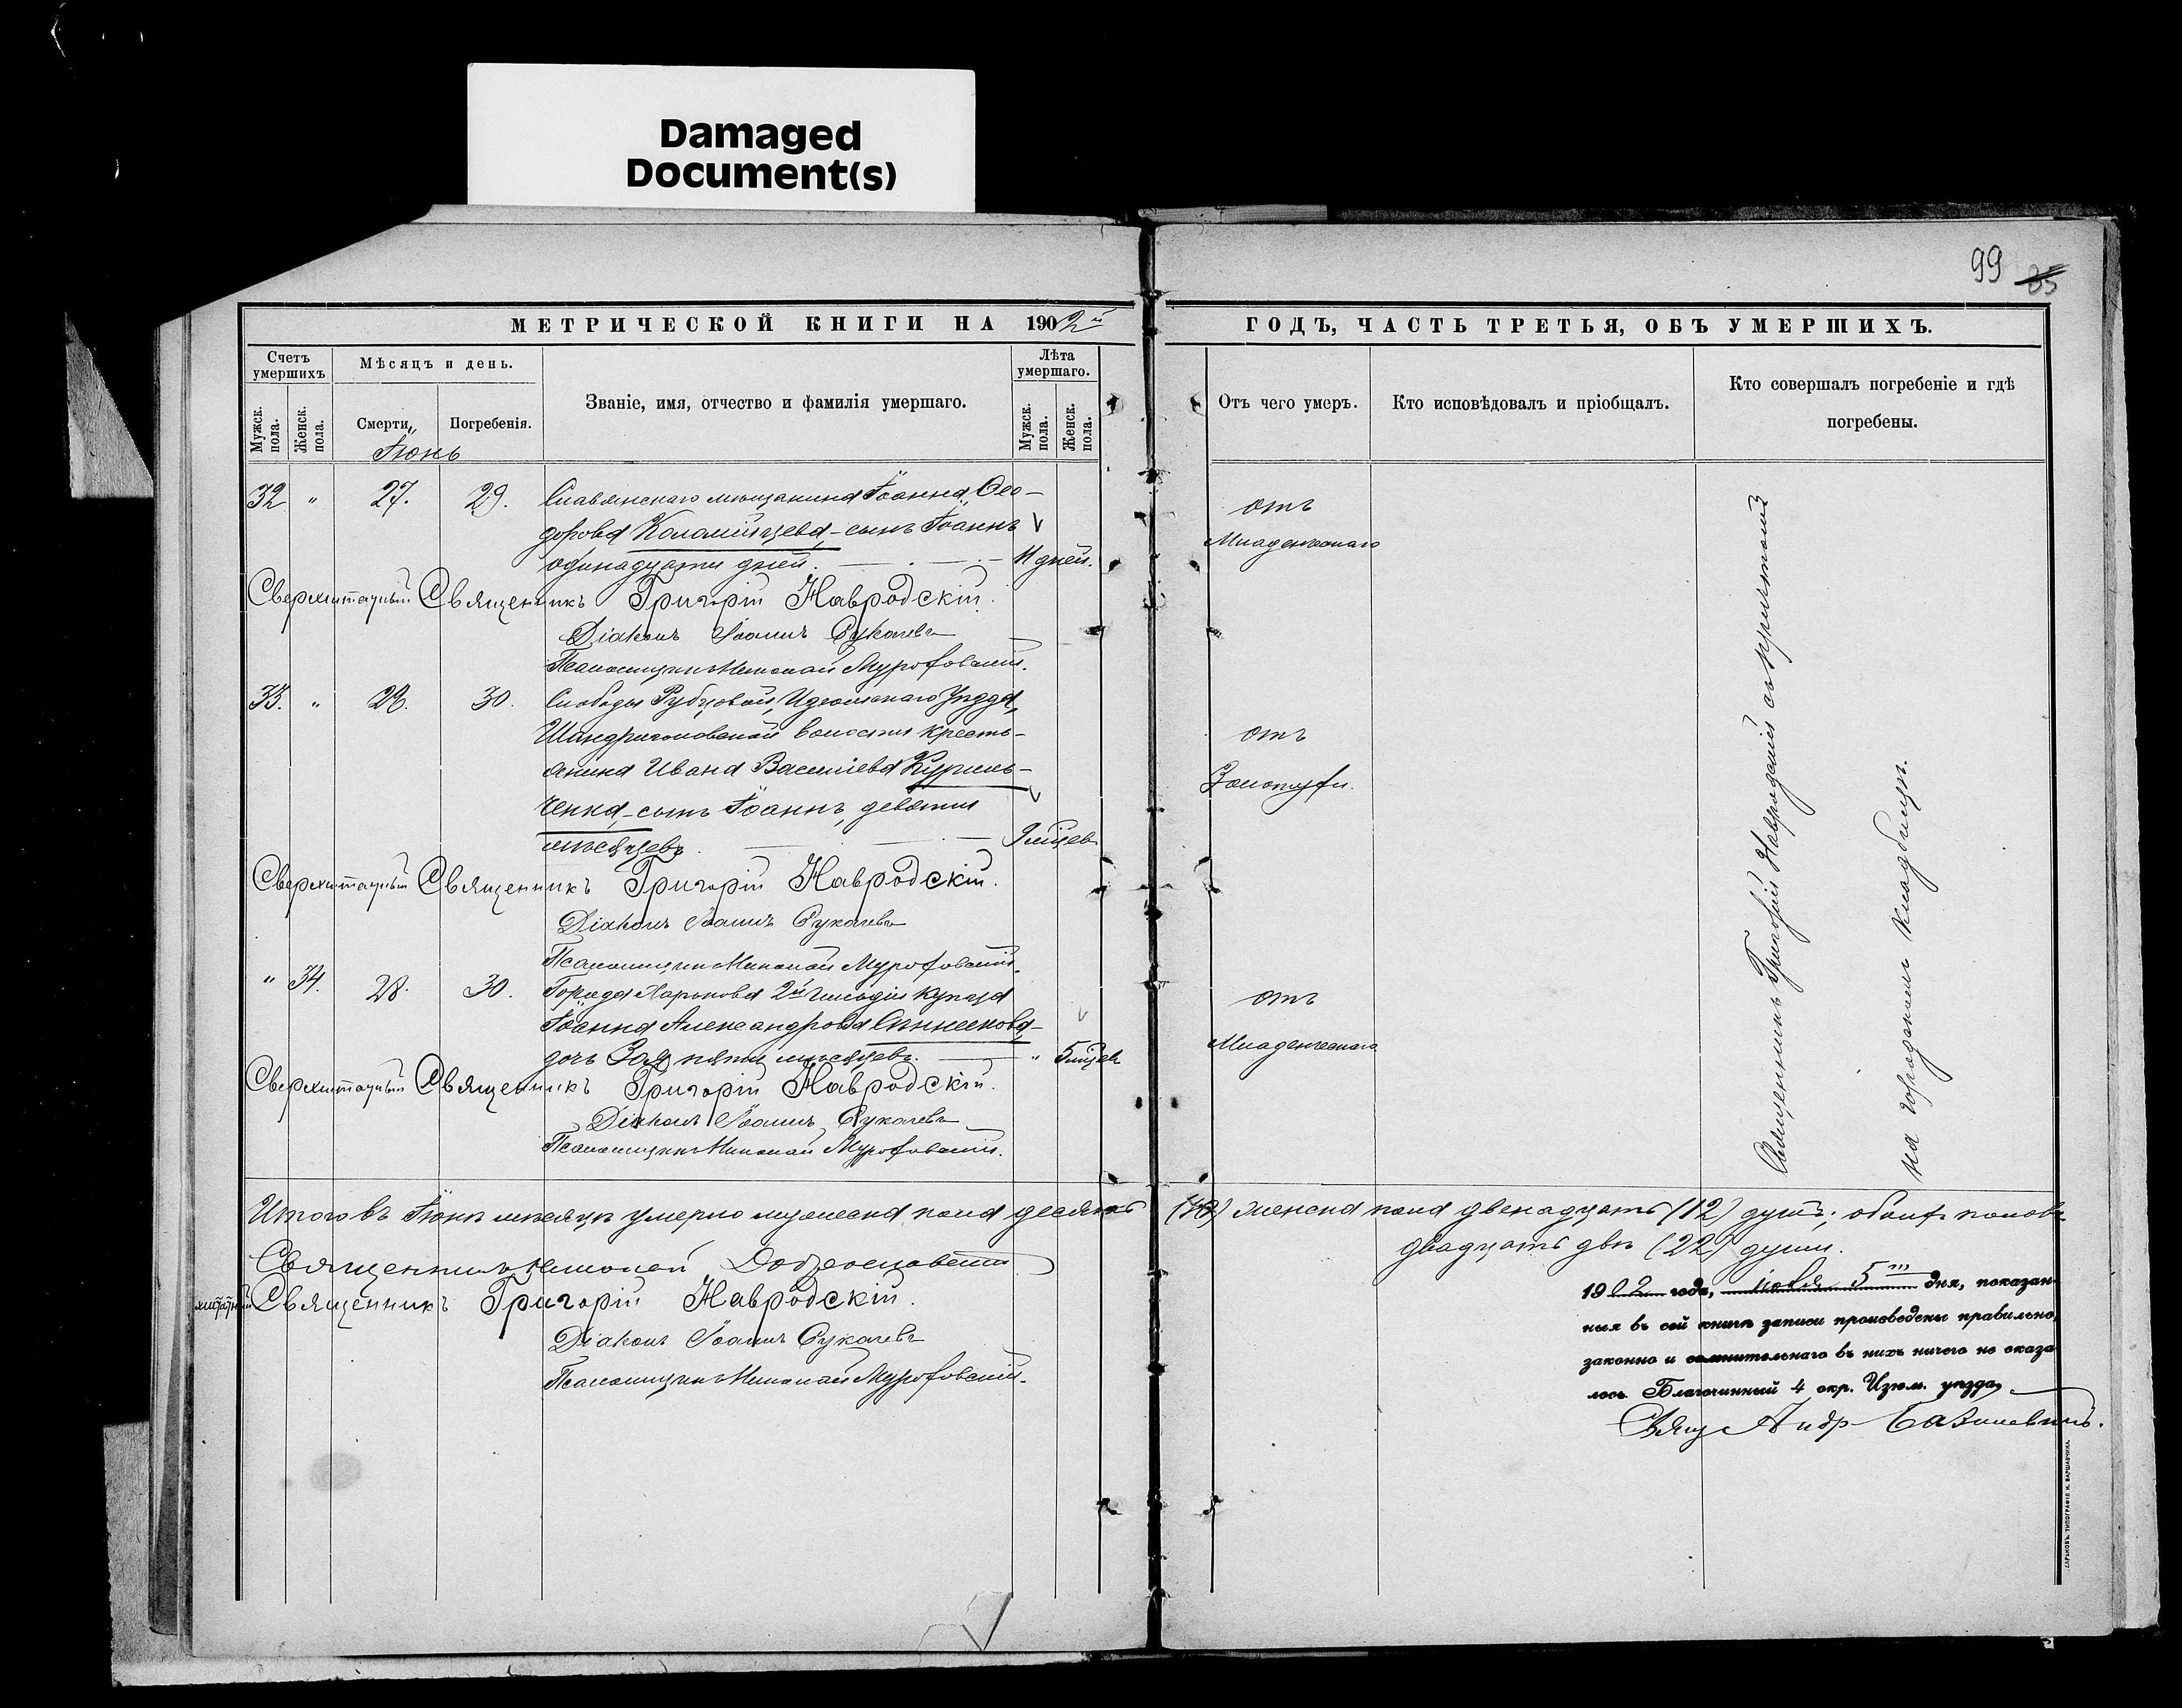 Damaged
Document(s)
99 85
МЕТРИЧЕСКОЙ КНИГИ НА 1902й
ГОДЪ, ЧАСТЬ ТРЕТЬЯ, ОБЪ УМЕРШИХЪ.
Счетъ умершихъ
Мѣсяцъ и день.
Званіе, имя, отчество и фамилія умершаго.
Лѣта умершаго.
Мужск. пола.
Женск. пола.
Смерти
Погребенія.
Мужск. пола.
Женск. пола.
Отъ чего умеръ.
Кто исповѣдовалъ и пріобщалъ.
Кто совершалъ погребеніе и гдѣ
погребены.
Іюнь
32 " 27. 29. Славянскаго мѣщанина Іоанна Ѳео-
дорова Коломійцева, - сынъ Іоаннъ
одинадцати дней. 11 дней.
отъ
Младенческаго
Сверхштатный Священникъ Григорій Навродскій.
Діаконъ Іоаннъ Сукачевъ
Псаломщикъ Николай Мурофовскій.
33. " 28. 30. Слободы Рубцовой, Изюмскаго Уѣзда,
Шандриголовской волости кресть-
янина Ивана Василіева Куриль-
ченка, - сынъ Іоаннъ, девяти
мѣсяцевъ. 9 мѣцев
отъ
Золотухи.
Сверхштатный Священникъ Григорій Навродскій.
Діаконъ Іоаннъ Сукачевъ
Псаломщикъ Николай Мурофовскій.
" 34. 28. 30. Города Харькова 2й гильдіи купца
Іоанна Александрова
дочь Зоя, пяти мѣсяцевъ. " 5 мѣцев
отъ
Младенческаго
Сверхштатный Священникъ Григорій Навродскій.
Діаконъ Іоаннъ Сукачевъ
Псаломщикъ Николай Мурофовскій.
Священникъ Григорій Навродскій съ причтомъ
на городскомъ кладбищѣ.
Итого въ Іюнѣ мѣсяцѣ умерло мужеска пола десять (10) женска пола двенадцать (12) душъ; обоихъ половъ
двадцать двѣ (22) души.
Священникъ Николай
Священникъ Григорій Навродскій.
Діаконъ Іоаннъ Сукачевъ
Псаломщикъ Николай Мурофовскій.
1902 года, іюля 5го дня, показан-
ныя въ сей книгѣ записи произведены правильно,
законно и сомнительнаго въ нихъ ничего не оказа-
лось. Благочинный 4 окр. Изюм. уѣзда,
Свящ Андр Базилевичъ.
ХАРЬКОВЪ. ТИПОГРАФІЯ И. ВАРШАВЧИКА.